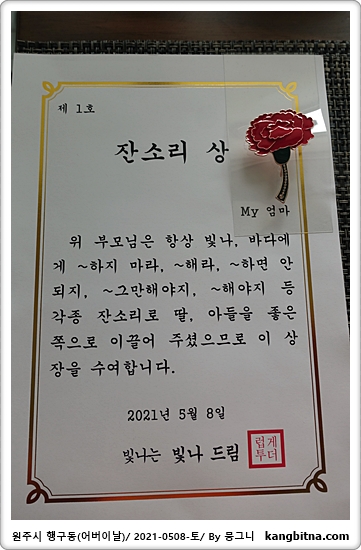 제 1호
잔소리 상
My 엄마
위 부모님은 항상 빛나, 바다에
게 ~하지 마라, ~해라, ~하면 안
되지, ~그만해야지, ~해야지 등
각종 잔소리로 딸, 아들을 좋은
쪽으로 이끌어 주셨으므로 이 상
장을 수여합니다.
2021년 5월 8일
빛나는 빛나 드림
럽게
투더
원주시 행구동(어버이날)/ 2021-0508-토/ By 몽그니 kangbitna.com